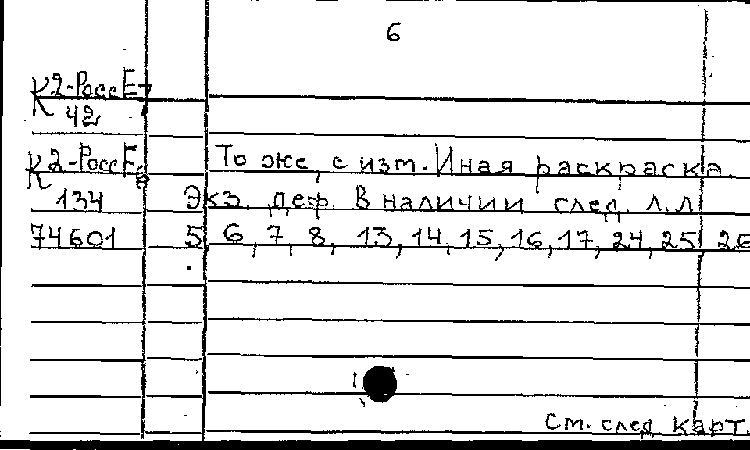 6
К2-Росс Е7
К 42
К2-Росс Е8 То же, с изм. Иная раскраска.
К 134 Экз. деф. В наличии след. л.л.
74601 5, 6, 7, 8, 13, 14, 15, 16, 17, 24, 25, 26
См. след. карт.